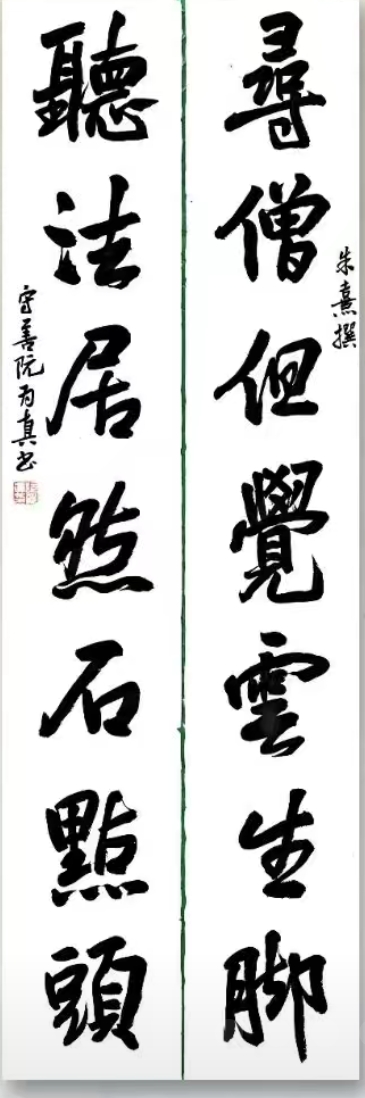 尋僧但覺雲生脚
朱熹撰
聽法居然石點頭
守善阮為真书